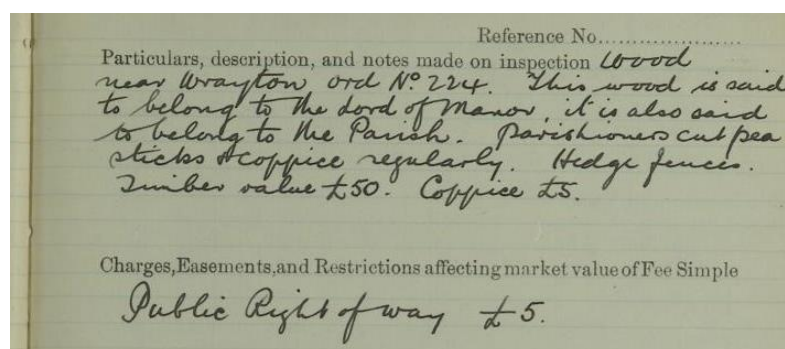 Reference No.....................
Particulars, description, and notes made on inspection Wood
near Wrayton ord No. 224. This wood is said
to belong to the Lord of Manor, it is also said
to belong to the Parish. Parishioners cut pea
sticks & coppice regularly. Hedge fences.
Timber value £50. Coppice £5.
Charges, Easements, and Restrictions affecting market value of Fee Simple
Public Right of way £5.